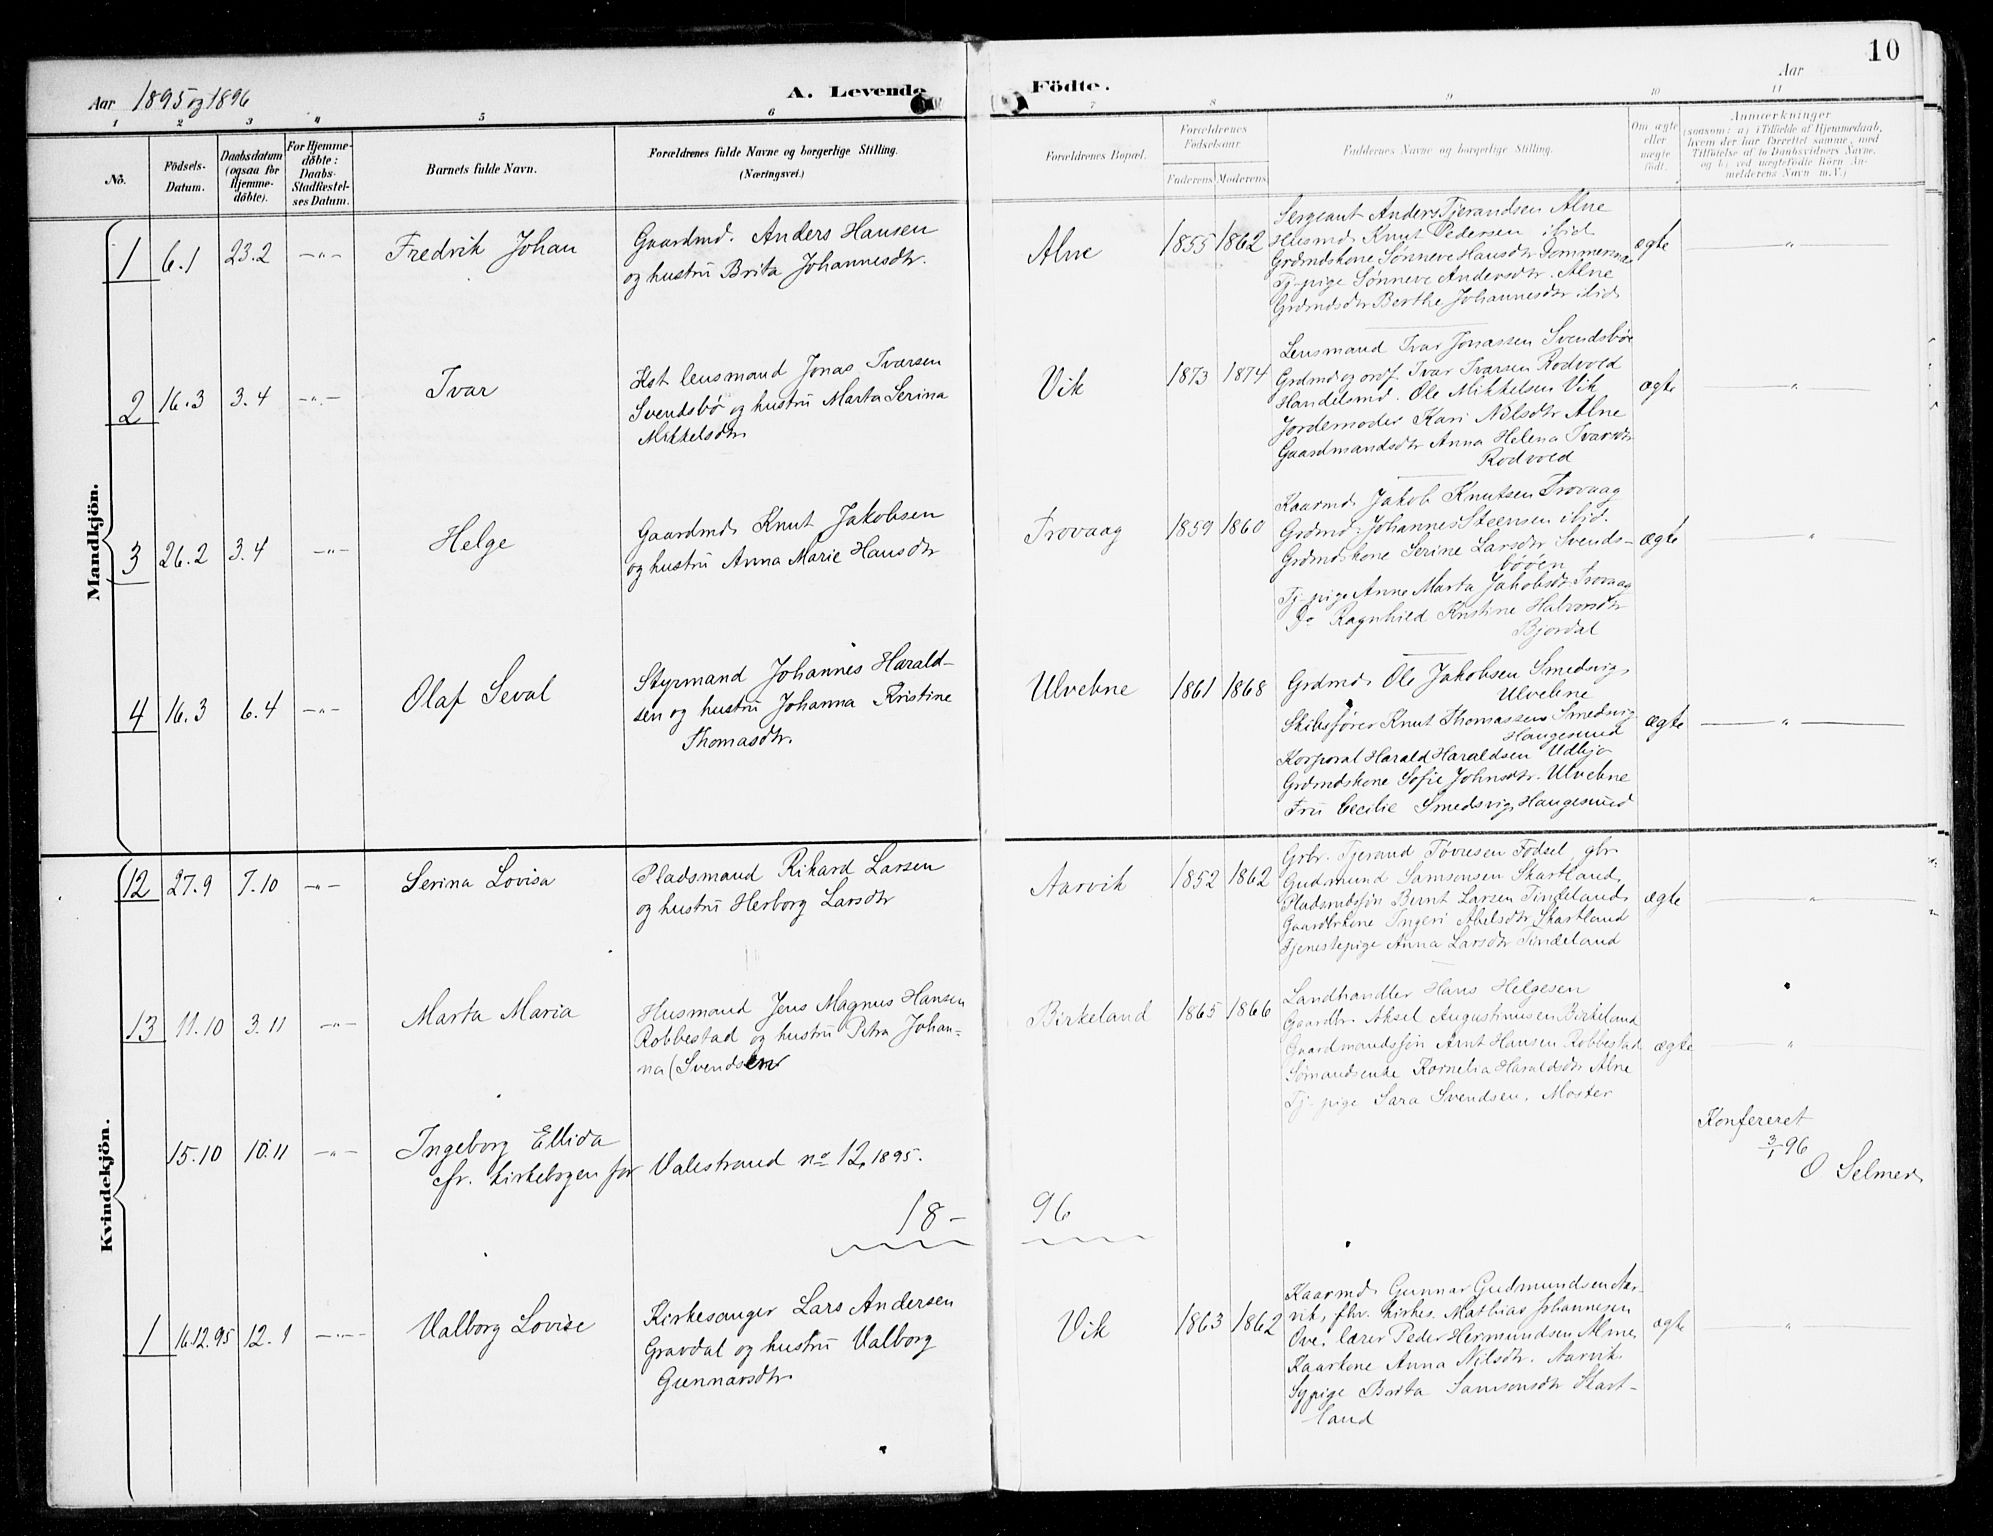 10
Aar 1895 og 1896
A. Levende Födte.
Aar
1 2 3 4 5 6 7 8 9 10 11
No.
Födsels-Datum.
Daabsdatum (ogsaa for Hjemme-døbte).
For Hjemme-døbte: Daabs-Stadfæstel-ses Datum.
Barnets fulde Navn.
Forældrenes fulde Navne og borgerlige Stilling. (Næringsvei.)
Forældrenes Bopæl.
Forældrenes Födselsaar.
Faderens. Moderens.
Faddernes Navne og borgerlige Stilling.
Om ægte eller uægte födt.
Anmærkninger
(saasom: a) i Tilfælde af Hjemmedaab,
hvem der har forrettet samme, med
Tilføielse af to Daabsvidners Navne,
og b) ved uægtefödte Börn An-
melderens Navn m.V.)
Mandkjön.
1 6.1 23.2 —"— Fredrik Johan
Gaardmd. Anders Hansen
og hustru Brita Johannesdtr.
Alne 1855 1862
Sergeant Anders Tjerandsen Alne
Husmd. Knut Pedersen ibid.
Grdmdskone Sønneve Hansdtr Tommernæs
Tj-pige Sønneve Andersdtr. Alne
Grdmdsdtr Berthe Johannesdtr ibid.
ægte —"—
2 16.3 3.4 —"— Ivar
Kst lensmand Jonas Ivarsen
Svendsbø og hustru Marta Serina
Mikkelsdtr
Vik 1873 1874
Lensmand Ivar Jonassen Svendsbøe
Grdmd og ordf. Ivar Ivarsen Rodvold
Handelsmd. Ole Mikkelsen Vik
Jordemoder Kari Nilsdtr Alne
Gaardmandsdtr Anna Helena Ivarsdtr
Rodvold
ægte —"—
3 26.2 3.4 —"— Helge
Gaardmd. Knut Jakobsen
og hustru Anna Marie Hansdtr
Trovaag 1859 1860
Kaarmd. Jakob Knutsen Trovaag
Grdmd. Johannes Steensen ibid.
Grdmdskone Serine Larsdtr Svends-
bøen
Tj-pige Anne Marta Jakobsdtr Trovaag
Do Ragnhild Kristine Halvorsdtr
Bjordal
ægte —"—
4 16.3 6.4 —"— Olaf Seval
Styrmand Johannes Harald-
sen og hustru Johanna Kristine
Thomasdtr.
Ulvebne 1861 1868
Grdmd. Ole Jakobsen Smedsvig,
Ulvebne
Skibsfører Knut Thomassen Smedsvig
Haugesund
Korporal Harald Haraldsen Udbjo
Grdmdskone Sofie Johnsdtr. Ulvebne
Fru Cecilie Smedsvig, Haugesund
ægte —"—
Kvindekjön.
12 27.9 7.10 —"— Serina Lovisa
Pladsmand Rikard Larsen
og hustru Herborg Larsdtr
Aarvik 1852 1862
Grbr. Tjerand Tøvresen Fødsel, gbr.
Gudmund Samsonsen Skartland,
Pladsmdssøn Bernt Larsen Tindeland,
Gaardbrkone Ingeri Abelsdtr Skartland
Tjenestepige Anna Larsdtr Tindeland
ægte —"—
13 11.10 3.11 —"— Marta Maria
Husmand Jens Magnus Hansen
Robbestad og hustru Petra Johan-
na (Svendsen
Birkeland 1865 1866
Landhandler Hans Helgesen
Gaardbr. Aksel Augustinusen Birkeland
Gaardmandssøn Arnt Hansen Robbestad
Sømandsenke Kornelia Haraldsdtr Alne
Tj-pige Sara Svendsen, Moster
ægte —"—
15.10 10.11 —"— Ingeborg Ellida
cfr. kirkebogen for Valestrand no 12, 1895.
Konfereret
3/1 96
O. Selmer
18— 96
1 16.12.95 12.1 —"— Valborg Lovise
Kirkesanger Lars Andersen
Gravdal og hustru Valborg
Gunnarsdtr
Vik 1863 1862
Kaarmd. Gunnar Gudmundsen Aar-
vik, fhv. kirkes. Mathias Johannesen
Ove, lærer Peder Hermundsen Alne,
Kaarkone Anna Nilsdtr. Aarvik
Sypige Berta Samsonsdtr Skart-
land
ægte —"—